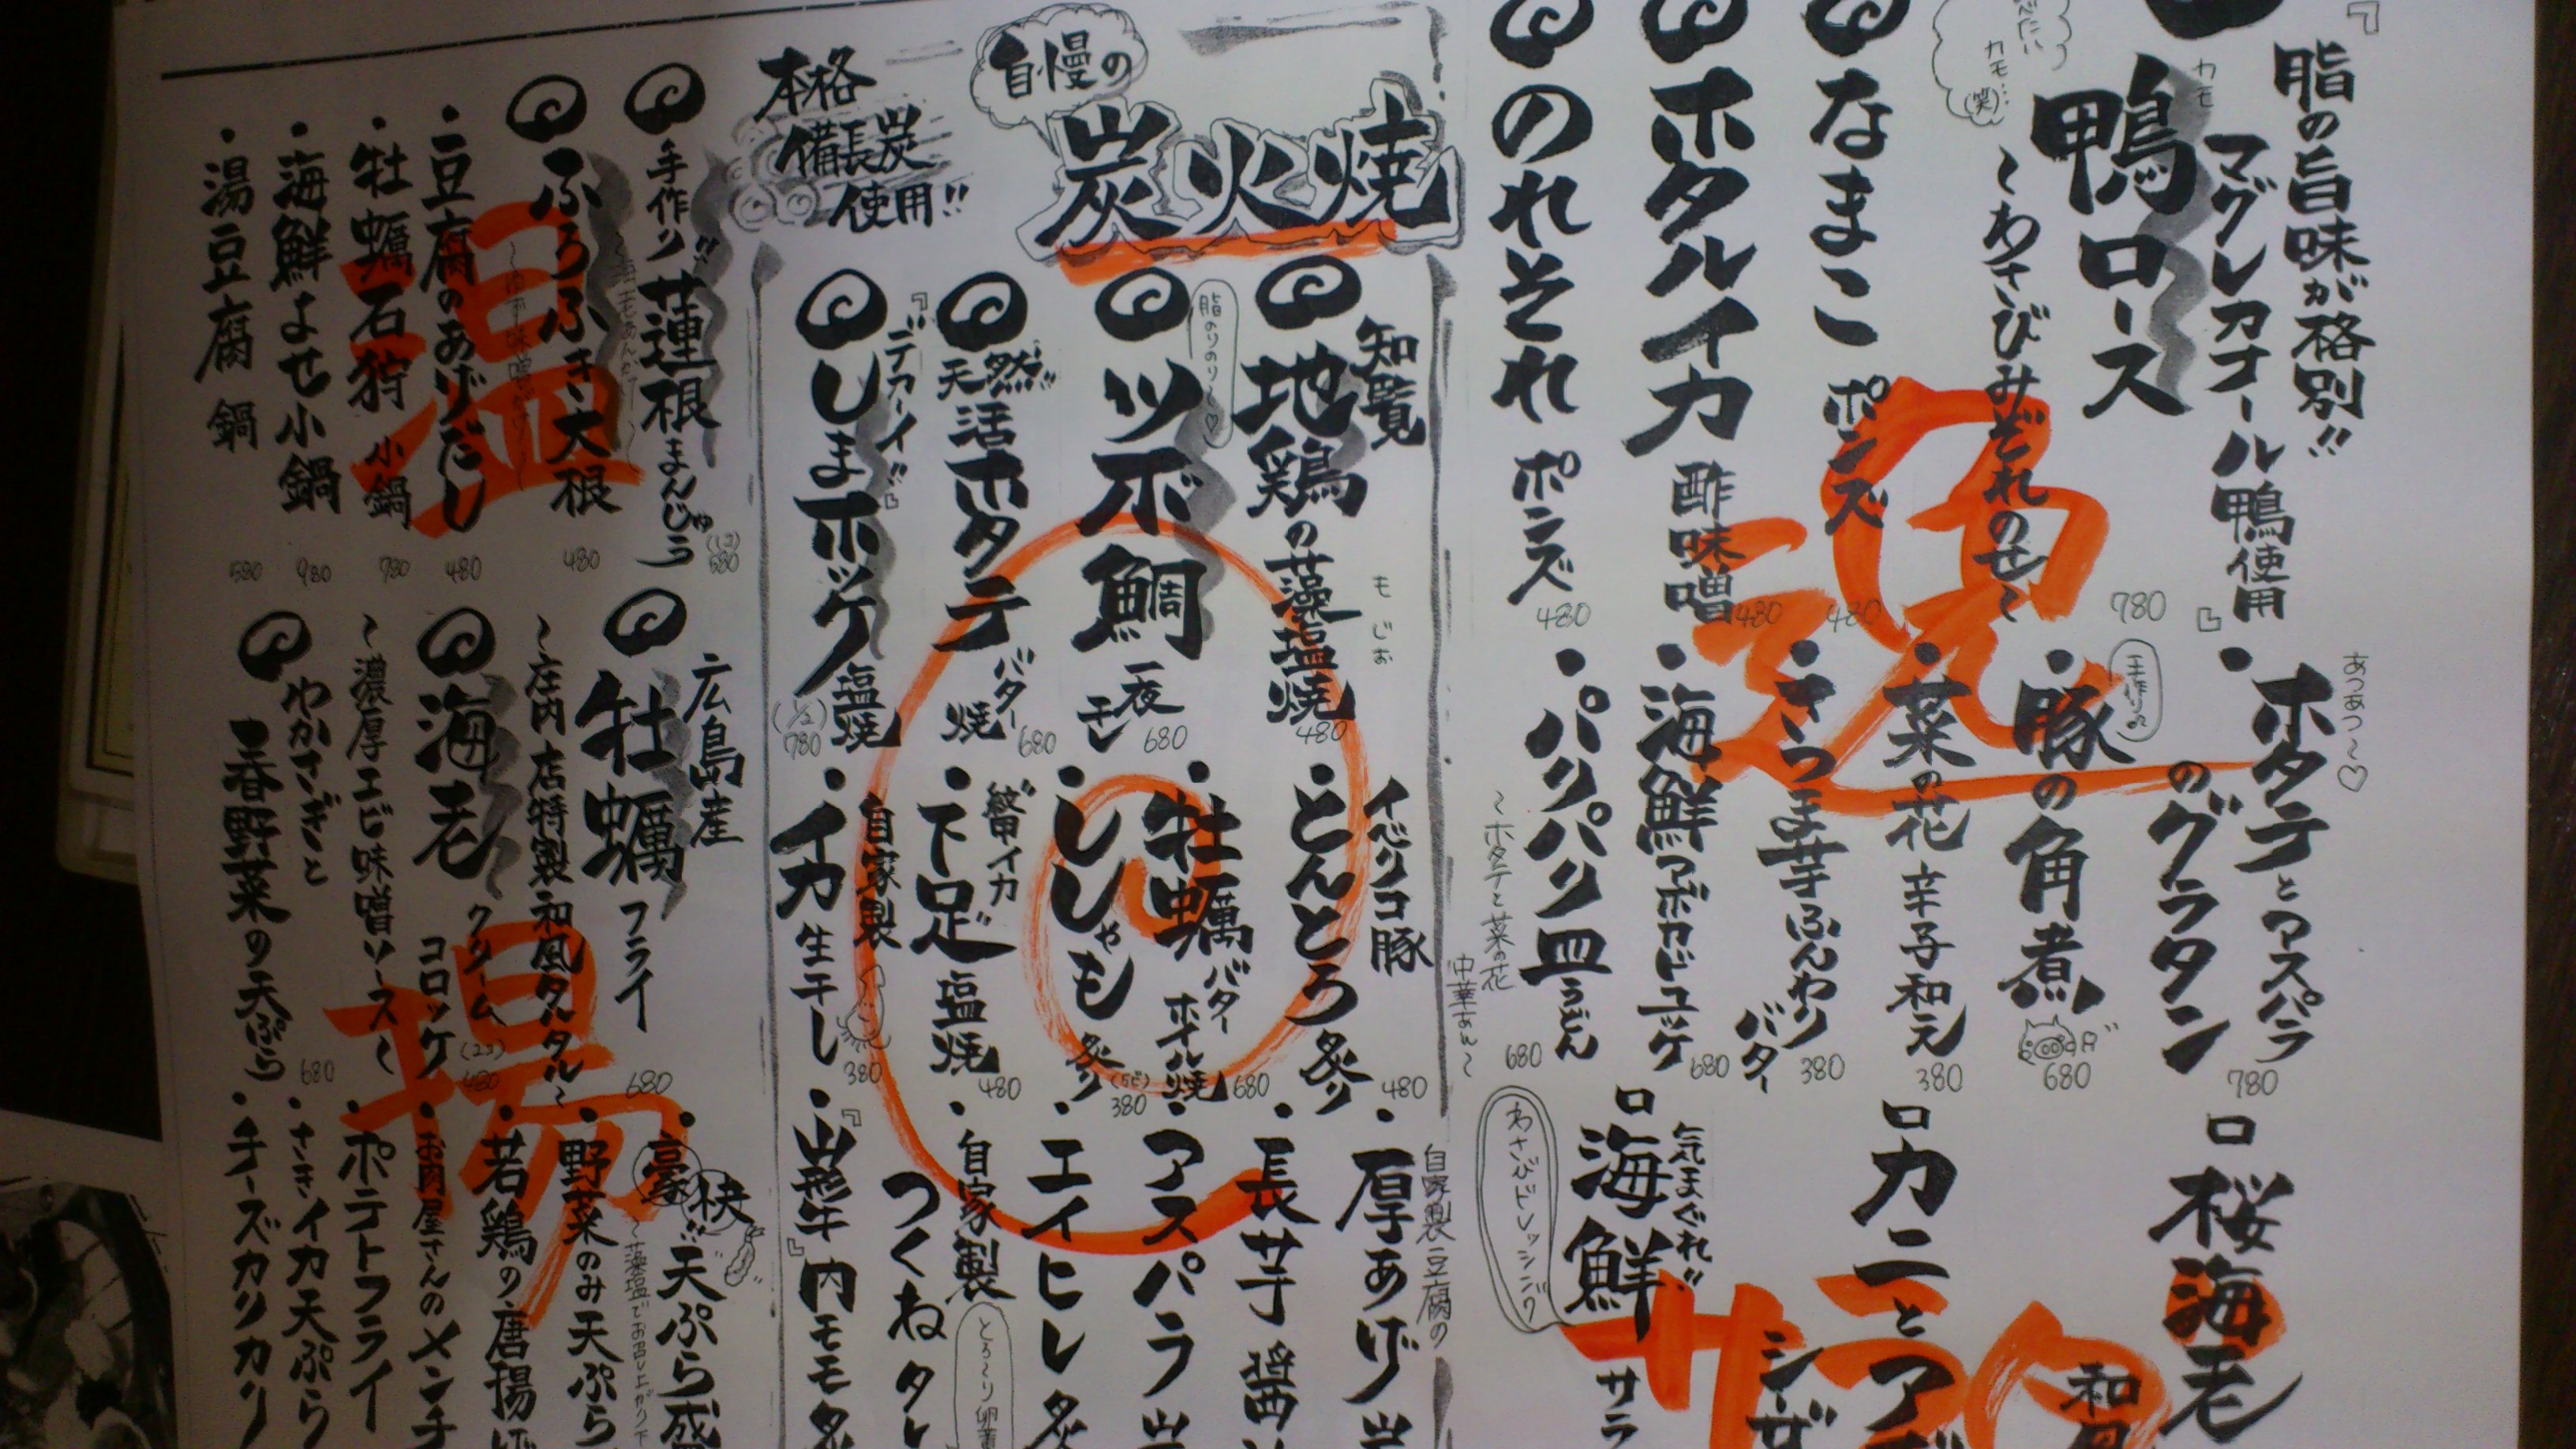 『脂の旨味が格別!!
マグレカナール鴨使用』
カモ
鴨ロース
～わさびみぞれのせ～
780
カモ…
(笑)
なまこ ポンズ
480
ホタルイカ 酢味噌
480
のれそれ ポンズ
480
あつあつ～♡
・ホタテとアスパラ
のグラタン
780
手作り
・豚の角煮
680
・菜の花 辛子和え
380
・さつま芋ふんわりバター
380
・海鮮アボカドユッケ
680
・パリパリ皿うどん
～ホタテと菜の花
中華あん～
680
桜海老
和風
カニとアボ
シーザ
気まぐれ!!
海鮮
サラ
わさびドレッシング
サラ
自慢の
炭火焼
本格
備長炭
使用!!
知覧
地鶏の藻塩焼
もじお
480
脂のりのり～♡
ツボ鯛 一夜干し
680
天然!!
活ホタテ バター焼
680
『デカーイ!!』
しまホッケ 塩焼
(1/2)
780
イベリコ豚
・とんとろ炙り
480
・牡蠣 バターホイル焼
680
・ししゃも炙り
(5ピ)
380
・甲イカ
下足 塩焼
480
自家製
・イカ 生干し
380
自家製豆腐の
・厚あげ
・長芋 醤
・アスパラ
・エイヒレ
・自家製
つくね タレ
とろ～り卵黄
・『山形牛』内モモ
手作り!!
蓮根まんじゅう
(1コ)
580
ふろふき大根
480
・豆腐のあげだし
480
・牡蠣石狩 小鍋
780
・海鮮よせ小鍋
980
・湯豆腐 鍋
580
温
広島産
牡蠣 フライ
～庄内店特製和風タルタル～
680
海老 クリームコロッケ
(2コ)
480
～濃厚エビ味噌ソース～
わかさぎと
春野菜の天ぷら
680
揚
・豪快!!天ぷら盛
～藻塩でお召し上がり下
・野菜のみ天ぷら
・若鶏の唐揚げ
・お肉屋さんのメンチ
・ポテトフライ
・さきイカ天ぷら
・チーズカリカリ